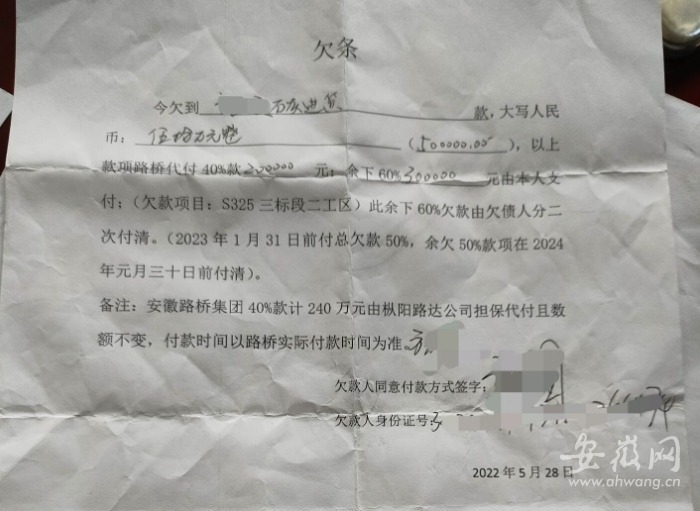 欠条
今欠到 石灰进货 款，大写人民
币：伍拾万元整（500000.00），以上
款项路桥代付40%款200000元；余下60%300000元由本人支
付；（欠款项目：S325三标段二工区）此余下60%欠款由欠债人分二
次付清。（2023年1月31日前付总欠款50%，余欠50%款项在2024
年元月三十日前付清）。
备注：安徽路桥集团40%款计240万元由枞阳路达公司担保代付且数
额不变，付款时间以路桥实际付款时间为准
欠款人同意付款方式签字：
欠款人身份证号：3
2022年5月28日
安徽网
www.ahwang.cn